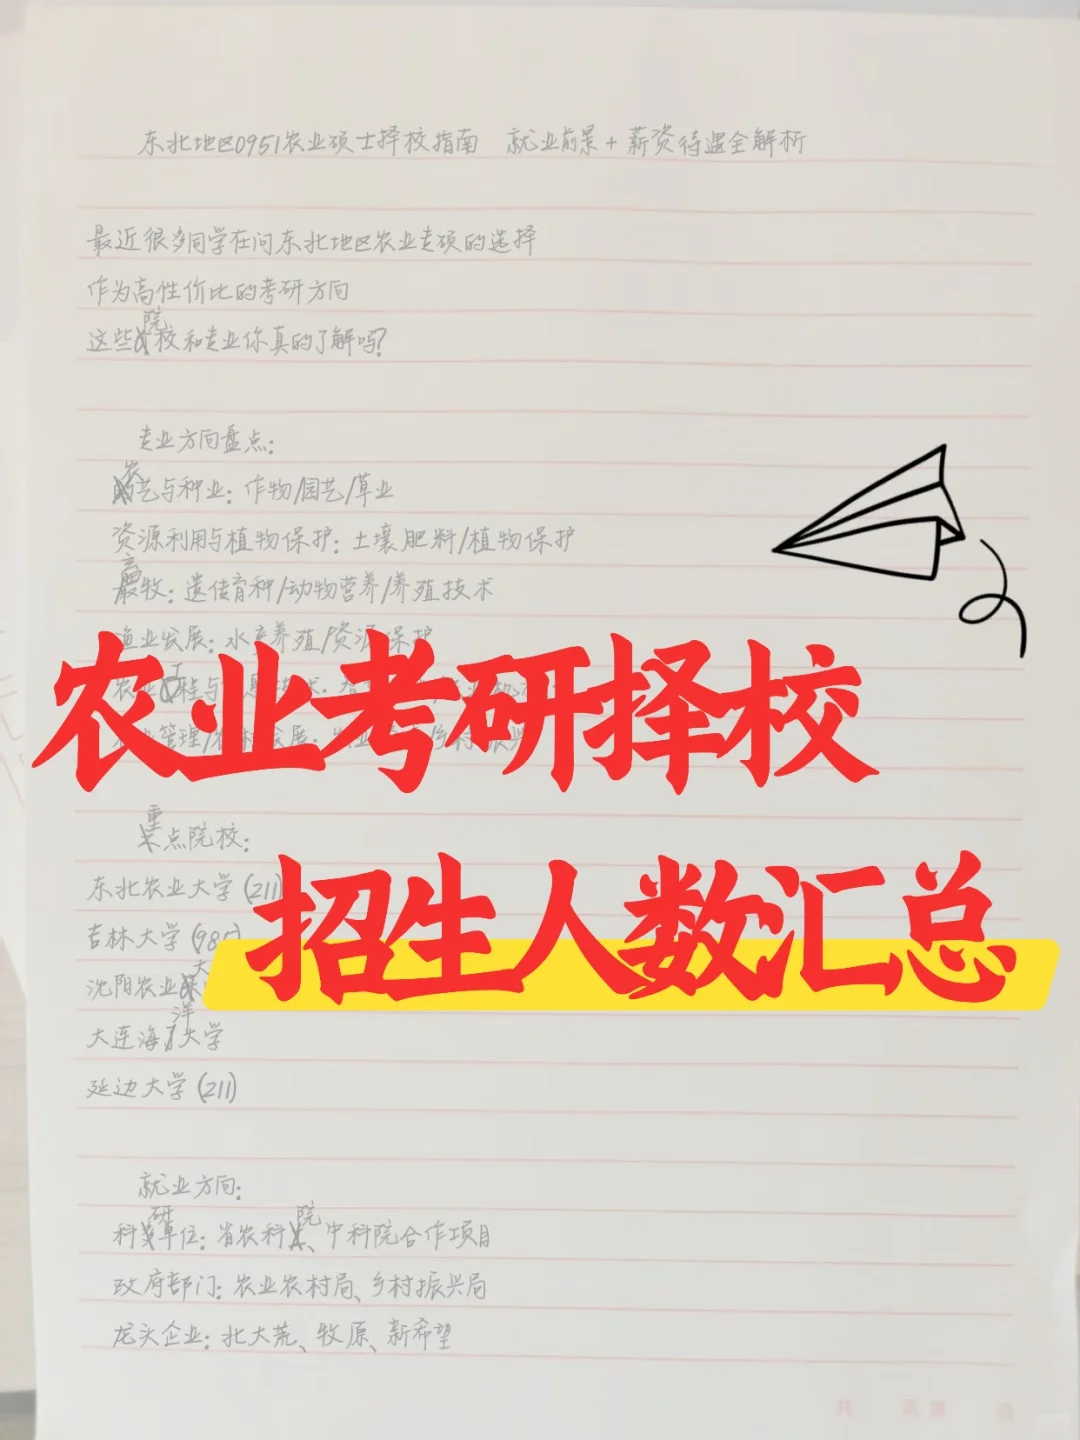 东北地区0951农业硕士择校指南 就业前景+薪资待遇全解析
最近很多同学在问东北地区农业专硕的选择
作为高性价比的考研方向
这些院校和专业你真的了解吗?
专业方向盘点:
农艺与种业:作物/园艺/草业
资源利用与植物保护:土壤肥料/植物保护
畜牧:遗传育种/动物营养/养殖技术
渔业发展:水产养殖/资源保护
农业考研择校
重点院校:
东北农业大学(211)
招生人数汇总
吉林大学(985)
沈阳农业大
大连海洋大学
延边大学(211)
就业方向:
科研单位:省农科院、中科院合作项目
政府部门:农业农村局、乡村振兴局
龙头企业:北大荒、牧原、新希望